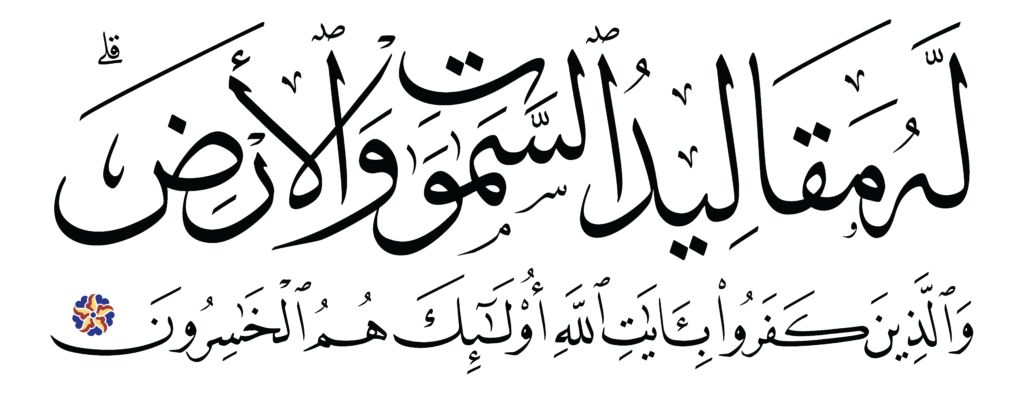 لَّهُۥ مَقَالِيدُ ٱلسَّمَٰوَٰتِ وَٱلْأَرْضِ ۗ
وَٱلَّذِينَ كَفَرُوا۟ بِـَٔايَٰتِ ٱللَّهِ أُو۟لَٰٓئِكَ هُمُ ٱلْخَٰسِرُونَ